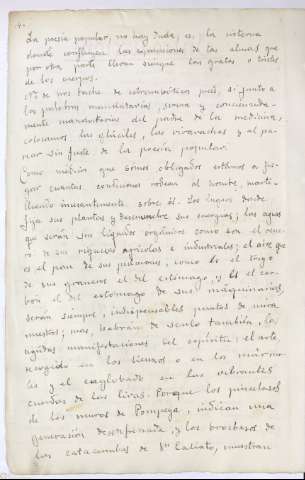 La poesía popular, no hay duda, es, la cisterna
donde confluyen las expansiones de las almas que
por otra parte llevan siempre los gratos o tristes
de los cuerpos.
No se nos tache de extravagantes pues, si junto a
las palabras mandatarias, sana y concienzuda-
mente mandatarias del padre de la medicina,
colocamos las sutiles, las vivarachas y al pa-
recer sin fuste de la poesía popular.
Como médicos que somos obligados estamos a ju-
zgar cuantas condiciones rodean al hombre, marti-
lleando incesantemente sobre él. Los lugares donde
fija sus plantas y desenvuelve sus energías; las aguas
que serán sus líquidos orgánicos como son el vene-
ro de sus riquezas agrícolas e industriales; el aire que
es el pan de sus pulmones, como es el trigo
de sus graneros el del estómago, y es el car-
bón el del estómago de sus maquinarias,
serán siempre, indispensables puntos de mira
nuestros; mas, habrán de serlo también, las
manifestaciones del espíritu, el arte
recogido en los lienzos o en los mármo-
les y el englobado en las vibrantes
cuerdas de las liras. Porque los pincelazos
de los muros de Pompeya, indican una
generación desenfrenada, y los brochazos de
las catacumbas de Sn Calixto, muestran